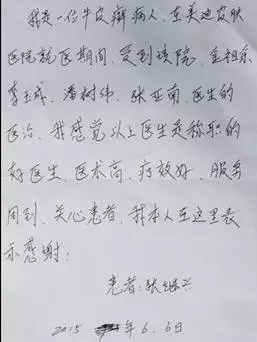 我是一位牛皮癣病人，在美迪皮肤
医院就医期间，受到该院，金祖余
李玉成，潘树伟，张亚南，医生的
医治，我感觉以上医生是称职的
好医生，医术高，疗效好，服务
周到，关心患者，我本人在这里表
示感谢；
患者：张继兴
2015年6.6日